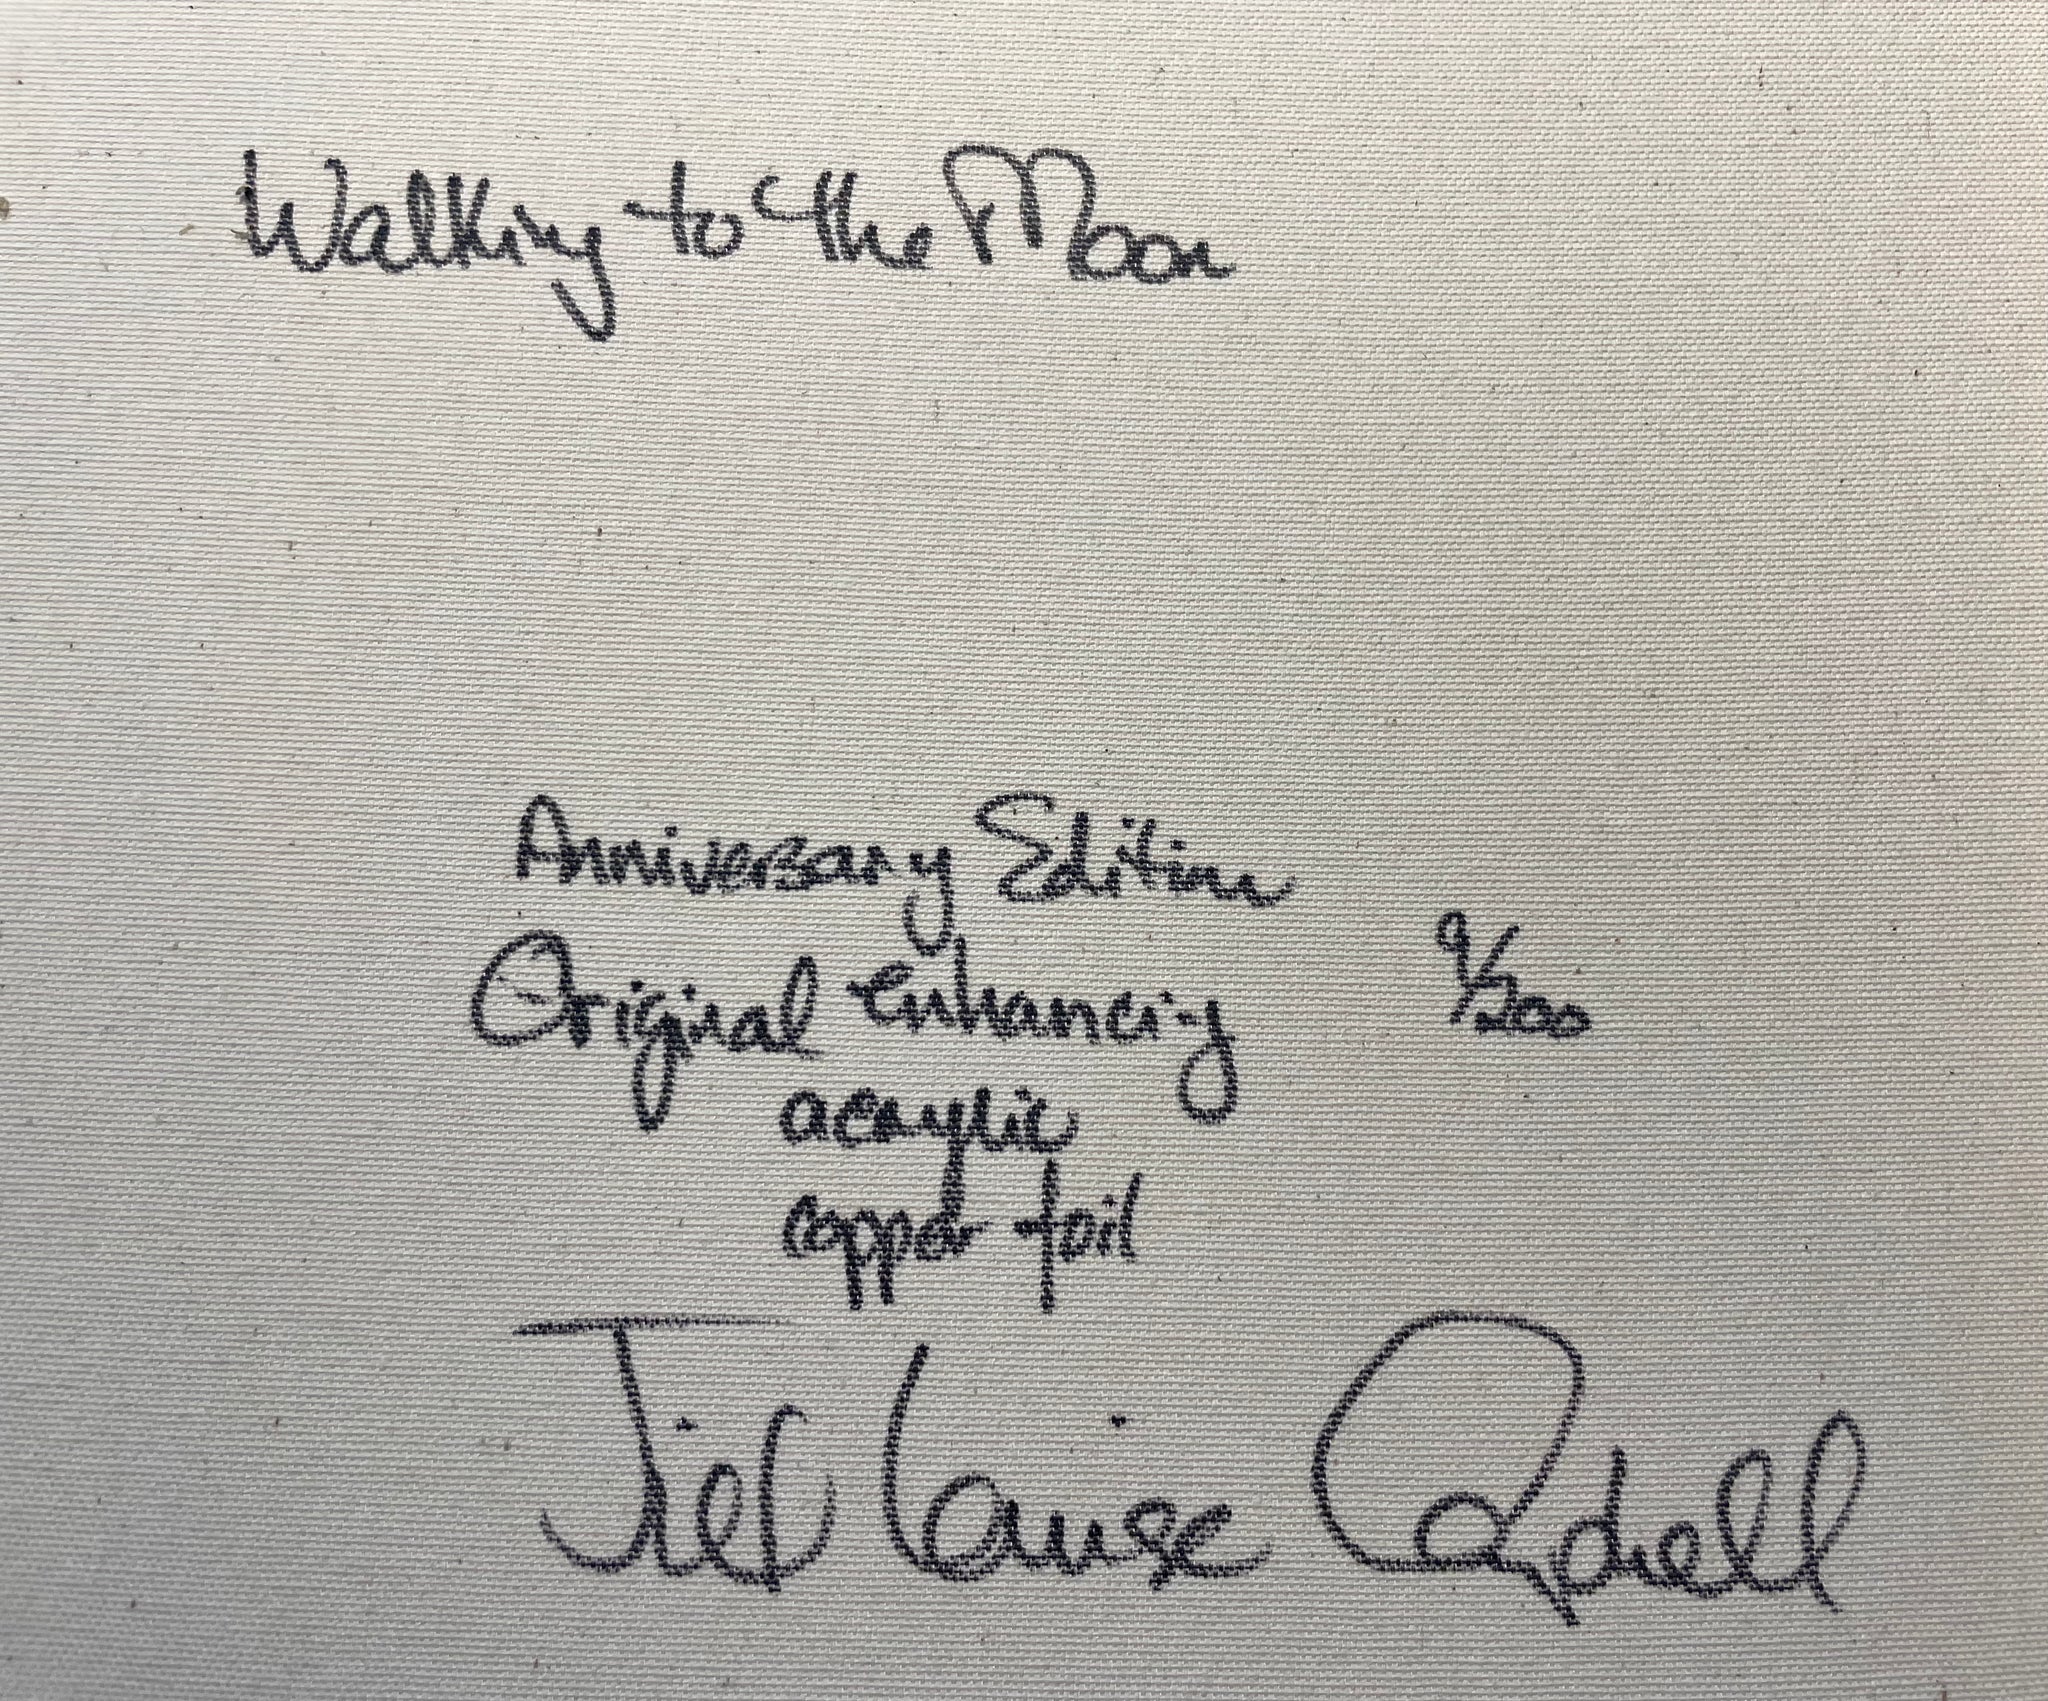 Walking to the Moon
Anniversary Edition
Original enhancing 9/200
acrylic
copper foil
Jill Louise